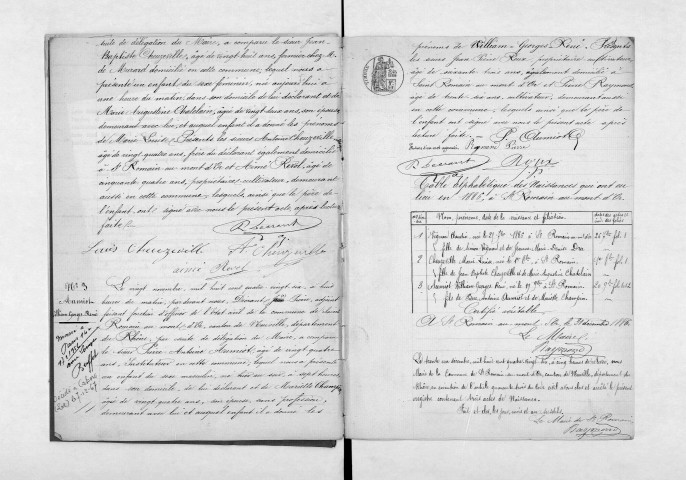 suite de délégation du Maire, a comparu le sieur Jean
Baptiste Cheuzeville, âgé de vingt huit ans, fermier chez M.
de Murard domicilié en cette commune, lequel nous a
présenté un enfant du sexe féminin, né aujourd'hui à
une heure du matin, dans son domicile de lui déclarant et de
Marie Augustine Chatelain, âgée de vingt deux ans, son épouse
demeurant avec lui, et auquel enfant il a donné les prénoms
de Marie Louise. Présents les sieurs Antoine Cheuzeville,
âgé de vingt quatre ans, frère du déclarant également domicilié
à St Romain au mont d'Or et Aimé Revol, âgé de
cinquante quatre ans, propriétaire cultivateur, demeurant
aussi en cette commune, lesquels, ainsi que le père de
l'enfant, ont signé avec nous le présent acte, après lecture
faite.
Louis Cheuzeville
aimé Revol
N° 3
Aumiot
William Georges René
Le vingt novembre, mil huit cent quatre vingt six, à huit
heures du matin, pardevant nous, Pierre, adjoint
faisant fonction d'officier de l'état civil de la commune de Saint
Romain au mont d'Or, canton de Neuville, département
du Rhône, par suite de délégation du Maire, a comparu
le sieur Pierre Antoine Aumiot, âgé de vingt quatre
ans, Instituteur en cette commune, lequel nous a présenté
un enfant du sexe masculin, né hier au soir, à sept heures
dans son domicile, de lui déclarant et de Mariette Champin
âgée de vingt quatre ans, son épouse, sans profession,
demeurant avec lui et auquel enfant il a donné les
prénoms de William-Georges René. Présents
les sieurs Jean Pierre Roux, propriétaire cultivateur,
âgé de soixante trois ans, également domicilié à
Saint Romain au mont d'Or et Pierre Raymond,
âgé de trente six ans, cultivateur, demeurant aussi
en cette commune, lesquels ainsi que le père de
l'enfant ont signé avec nous le présent acte après
lecture faite. P. Aumiot
Roux
Table Alphabétique des Naissances qui ont eu
lieu en 1886, à St Romain au mont d'Or.
Nom, prénoms, date de la naissance et filiation
1
2 Cheuzeville Marie Louise, à St Romain
fille de Jean Baptiste Cheuzeville et de Marie Augustine Chatelain
3 Aumiot William Georges René, né le 19 9bre à St Romain
fils de Pierre Antoine Aumiot et de Mariette Champin
Certifié véritable
A St Romain au mont d'Or, le 31 décembre 1886
Le Maire,
Raymond
registre contenant trois actes de Naissances.
Fait et clos les jour, mois et an susdits
Le Maire de St Romain
Raymond